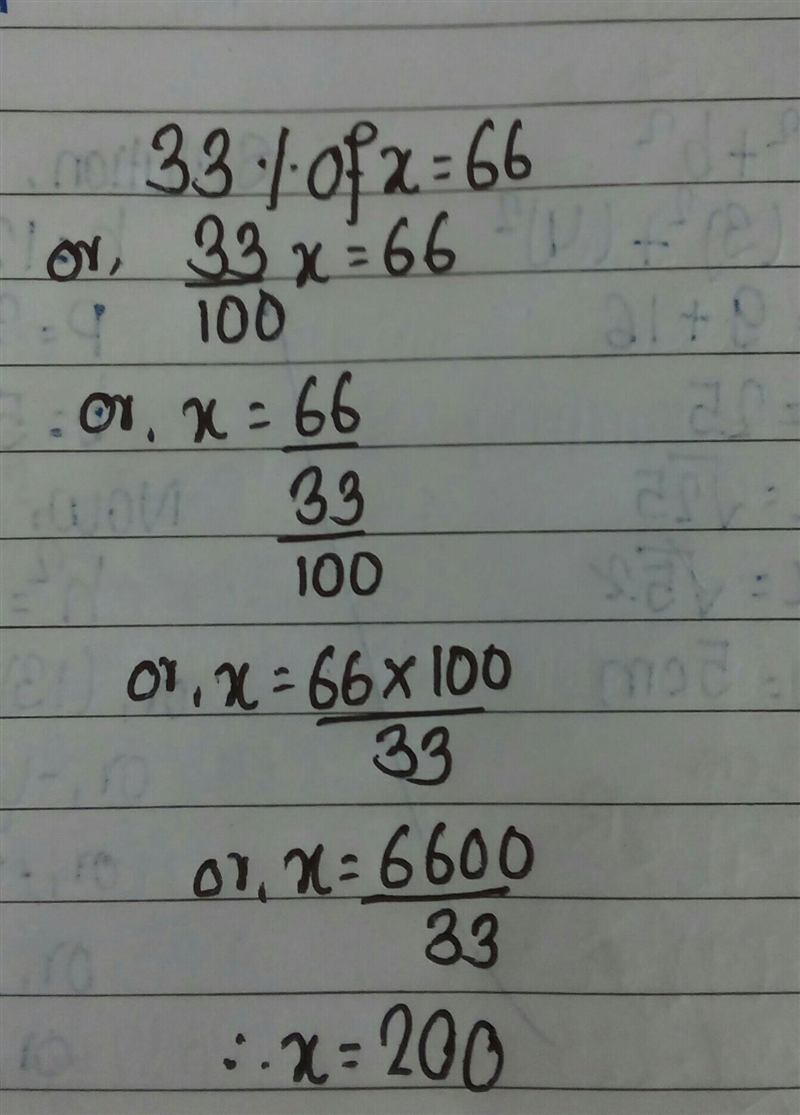 33 % of x = 66
or, 33/100 x = 66
or, x = 66/(33/100)
or, x = 66 × 100/33
or, x = 6600/33
∴ x = 200